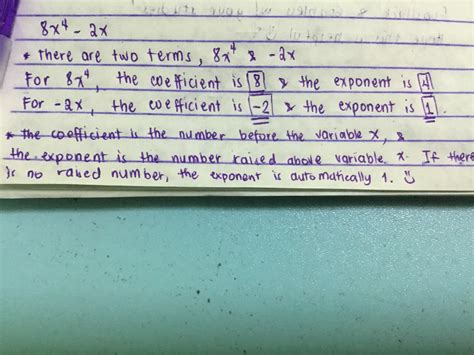 8x⁴ - 2x
* there are two terms, 8x⁴ & -2x
For 8x⁴, the coefficient is 8 & the exponent is 4
For -2x, the coefficient is -2 & the exponent is 1.
* the coefficient is the number before the variable x, &
the exponent is the number raised above variable x. If there
is no raised number, the exponent is automatically 1. ☺